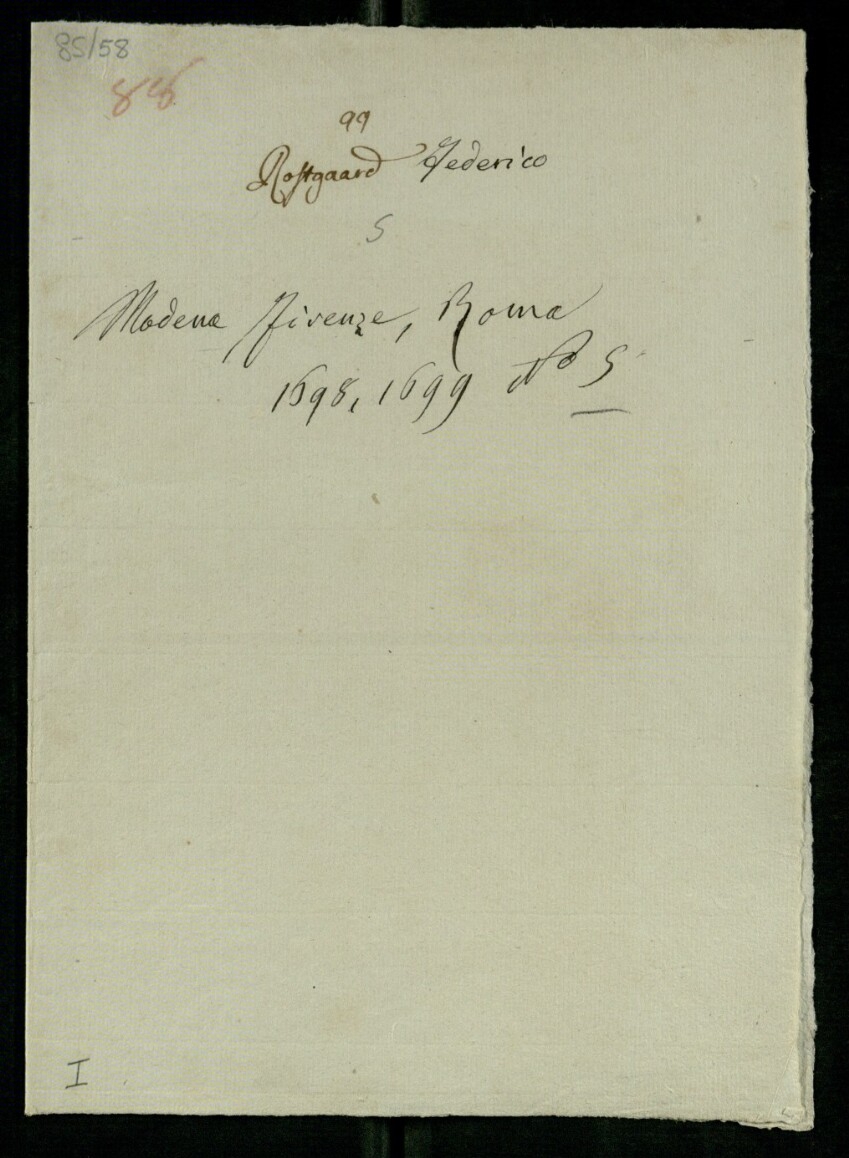 85/58
88
99
Rostgaard Federico
5
Modena Firenze, Roma
1698, 1699 No 5
I